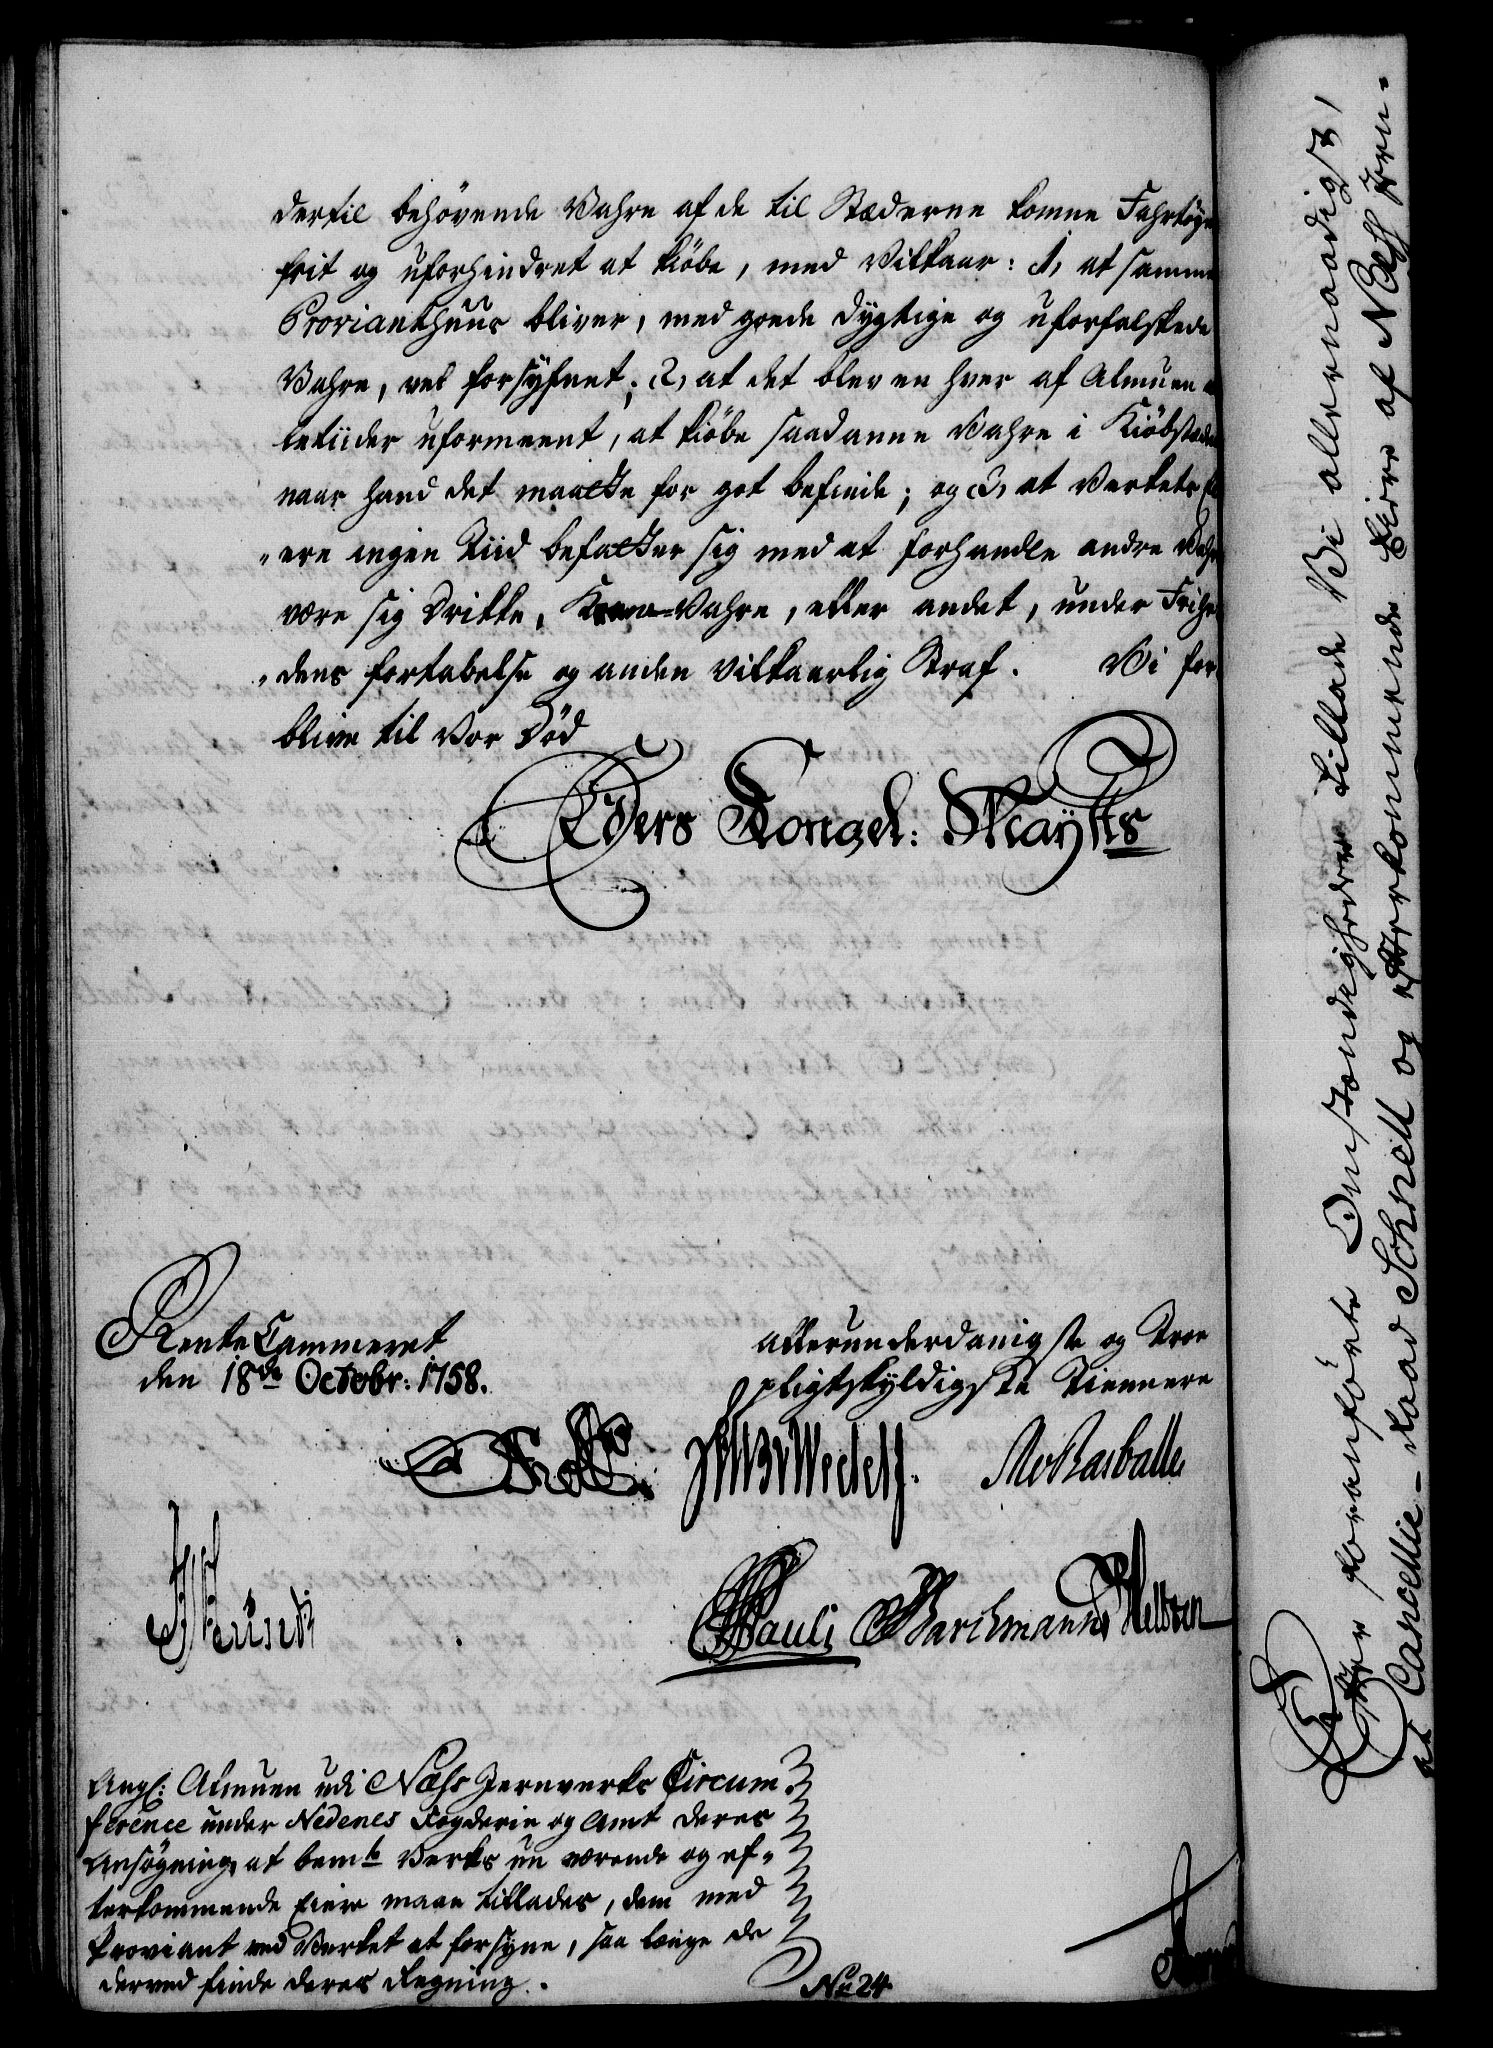 dertil behövende Vahre af de til Stæderne komne Fahrtöye
frit og uforhindret at kiöbe, med Vilkaar: 1, at samme
Provianthuus bliver, med goede dygtige og uforfalskede
Vahre, vel forsyfnet; 2, at det blev en hver af Almuen
letiider uformeent, at kiöbe saadanne Vahre i Kiöbstæde
naar hand det maatte for got befinde; og 3, at Verkets
ere ingen Tiid befatter sig med at forhandle andre Vahre
være sig Drikke, Kram-Vahre, eller andet, under Frihe
dens fortabelse og anden vilkaarlig Straf. Vi for
blive til Vor Död
Eders Kongel: Maytts
Rente Cammeret
den 18de Octobr: 1758.
allerunderdanigste og Troe
pligtskyldigste Tiennere
Wedell. Rasballe
Pauli Barchmann
Ang: Almuen udi Næss Jernverks Circum
ference under Nedenes Fogderie og Amt deres
Ansögning, at bemte Verks nu værende og ef-
terkommende Eiere maae tillades, dem med
Proviant ved Verket at forsyne, saa længe de
derved finde deres Regning.
No 24
Efter foranförte Omstændigheder tillade Vi allernaadigst,
at Cancellie-Raad Schnell og efterkommende Eiere af Næss Jern-